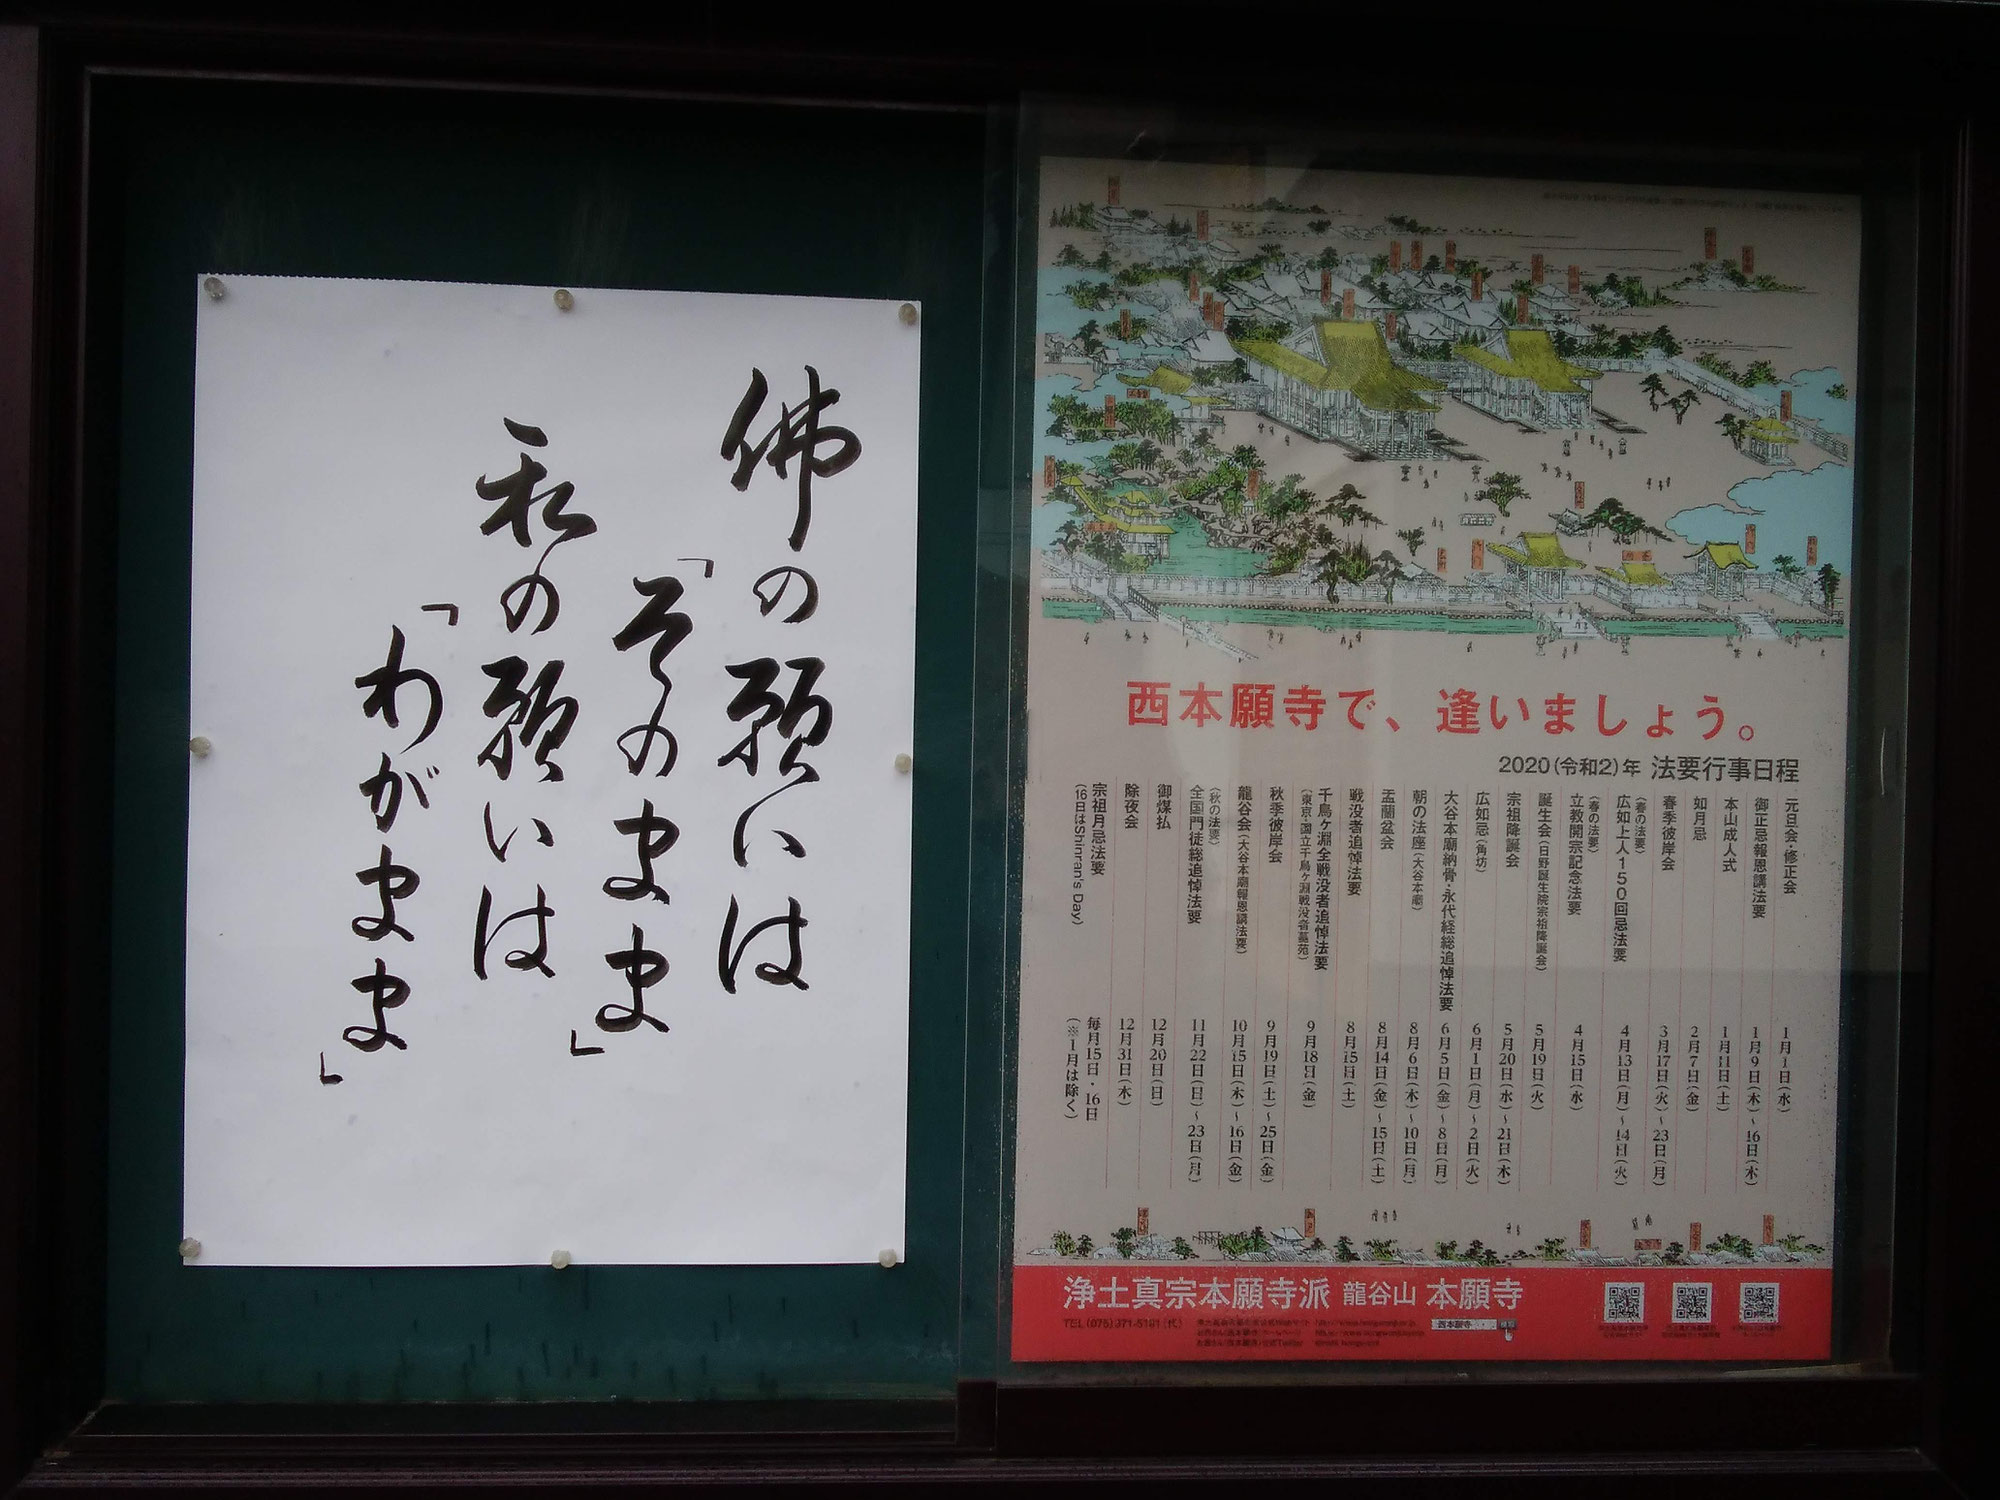 佛の願いは
「そのまま」
私の願いは
「わがまま」
西本願寺で、逢いましょう。
2020(令和2)年 法要行事日程
元旦会・修正会 1月1日(水)
御正忌報恩講法要 1月9日(木)～16日(木)
本山成人式 1月11日(土)
如月忌 2月7日(金)
春季彼岸会 3月17日(火)～23日(月)
(春の法要)
広如上人150回忌法要 4月13日(月)～14日(火)
(春の法要)
立教開宗記念法要 4月15日(水)
誕生会(日野誕生院宗祖降誕会) 5月19日(火)
宗祖降誕会 5月20日(水)～21日(木)
広如忌(角坊) 6月1日(月)～2日(火)
大谷本廟納骨・永代経総追悼法要 6月5日(金)～8日(月)
朝の法座(大谷本廟) 8月6日(木)～10日(月)
盂蘭盆会 8月14日(金)～15日(土)
戦没者追悼法要 8月15日(土)
千鳥ヶ淵全戦没者追悼法要 9月18日(金)
(東京・国立千鳥ヶ淵戦没者墓苑)
秋季彼岸会 9月19日(土)～25日(金)
龍谷会(大谷本廟報恩講法要) 10月15日(木)～16日(金)
(秋の法要)
全国門徒総追悼法要 11月22日(日)～23日(月)
御煤払 12月20日(日)
除夜会 12月31日(木)
宗祖月忌法要 毎月15日・16日
(16日はShinran's Day) (※1月は除く)
浄土真宗本願寺派 龍谷山 本願寺
TEL(075)371-5181(代)
西本願寺